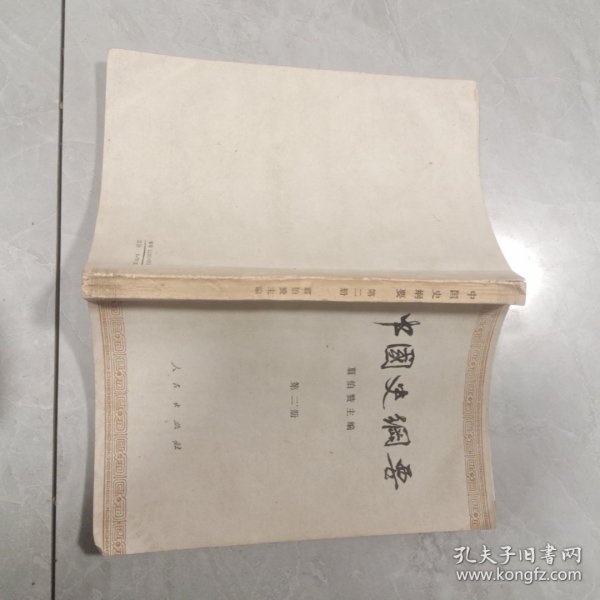 中國史綱要
翦伯赞主編
第二册
人民出版社
中国史綱要 第二册 翦伯赞主編
孔夫子旧书网
www.kongfz.com